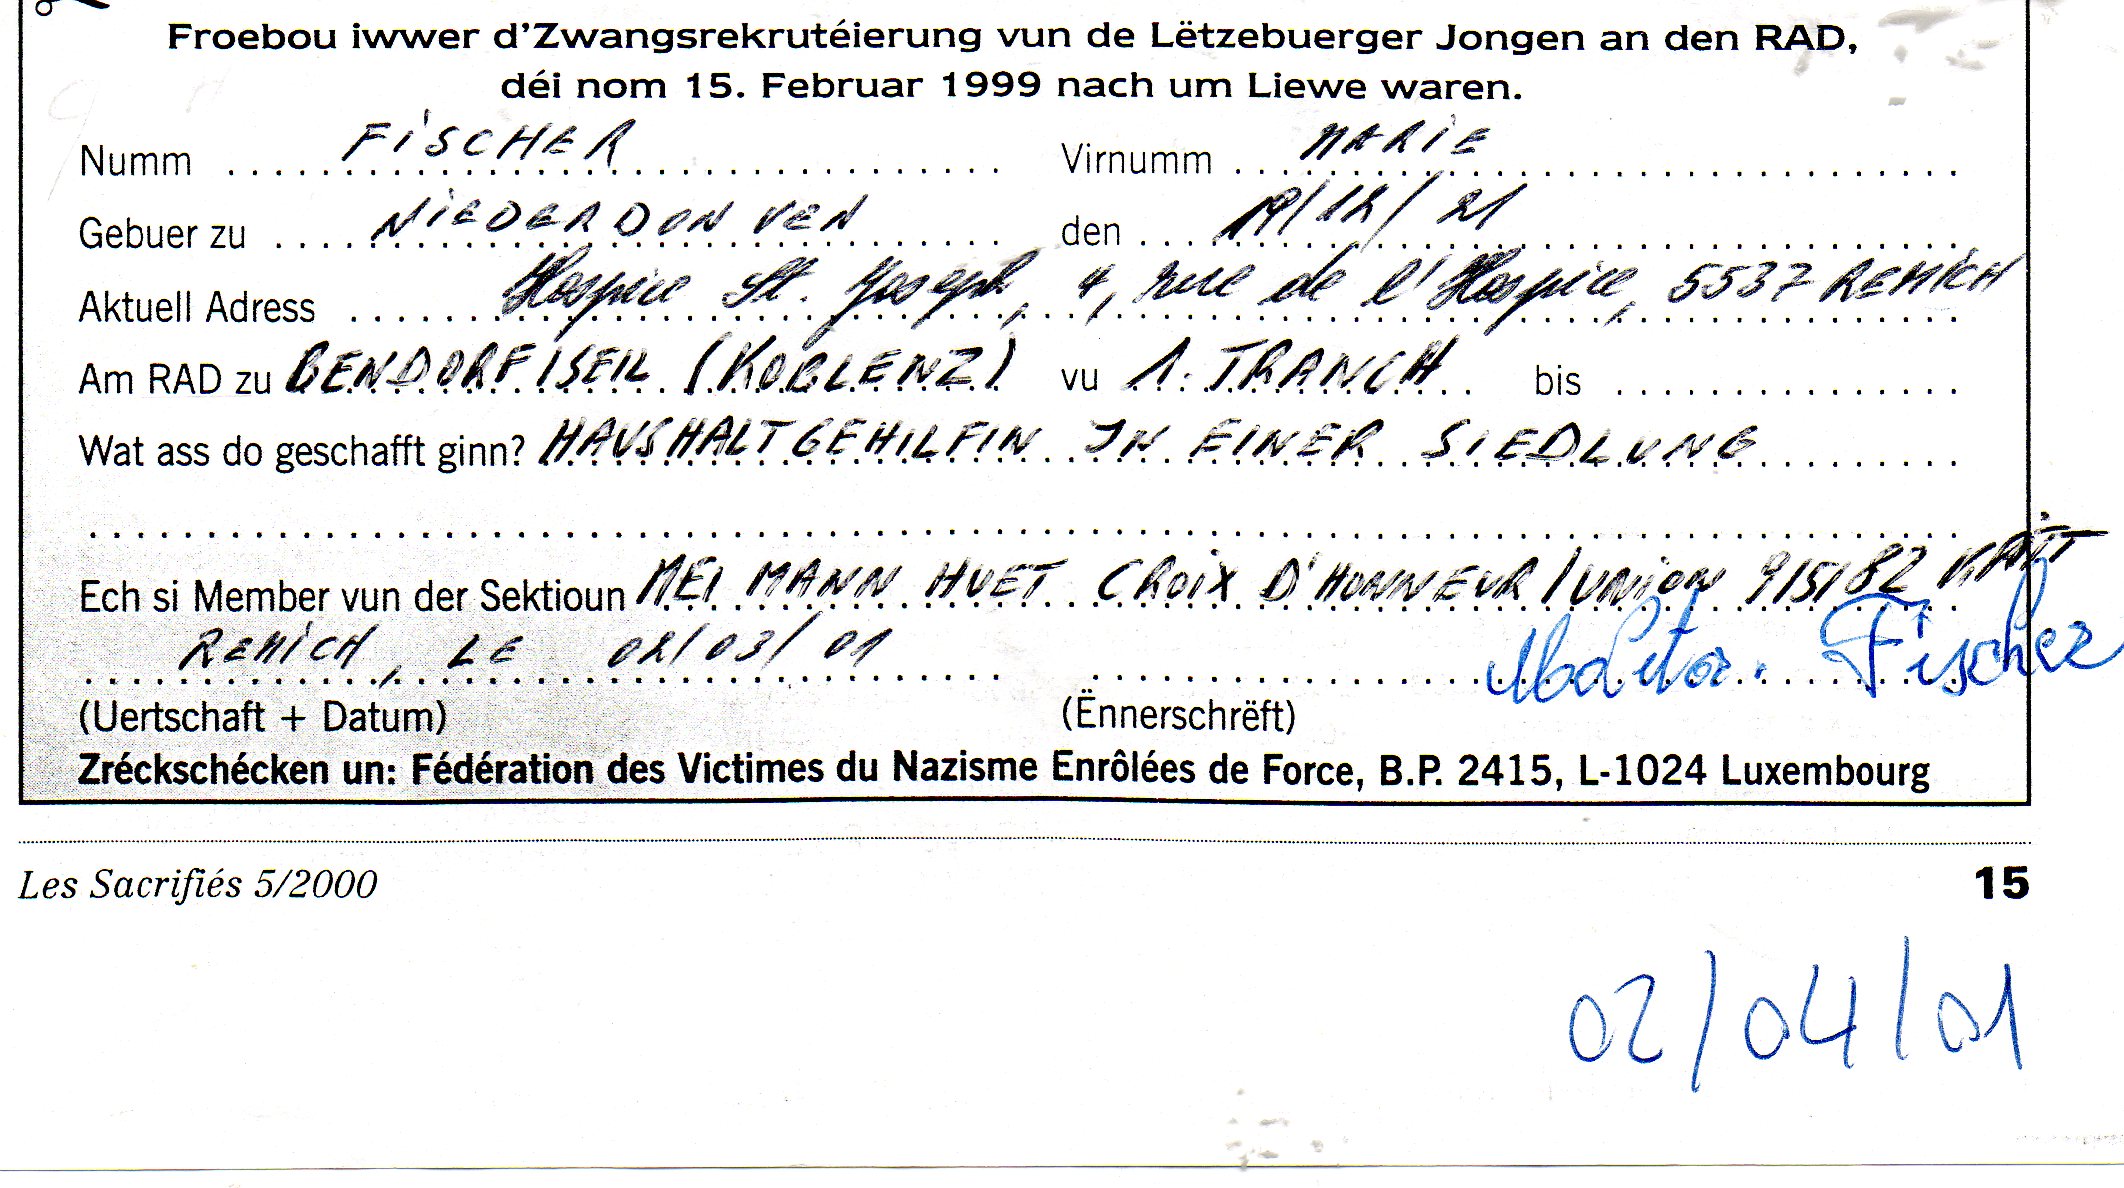 Froebou iwwer d'Zwangsrekrutéierung vun de Lëtzebuerger Jongen an den RAD,
déi nom 15. Februar 1999 nach um Liewe waren.
Numm FISCHER Virnumm MARIE
Gebuer zu NIEDERDONVEN den 19/12/21
Aktuell Adress Hospice St. Joseph, 4, rue de l'Hospice, 5537 REMICH
Am RAD zu BENDORF/SEIL (KOBLENZ) vu 1. TRANCH bis
Wat ass do geschafft ginn? HAUSHALTGEHILFIN IN EINER SIEDLUNG
Ech si Member vun der Sektioun MEI MANN HUET CROIX D'HONNEUR/UNION 9/5/82 KRITT
REMICH, LE 02/03/01 Molitor. Fischer
(Uertschaft + Datum) (Ënnerschrëft)
Zréckschécken un: Fédération des Victimes du Nazisme Enrôlées de Force, B.P. 2415, L-1024 Luxembourg
Les Sacrifiés 5/2000 15
02/04/01